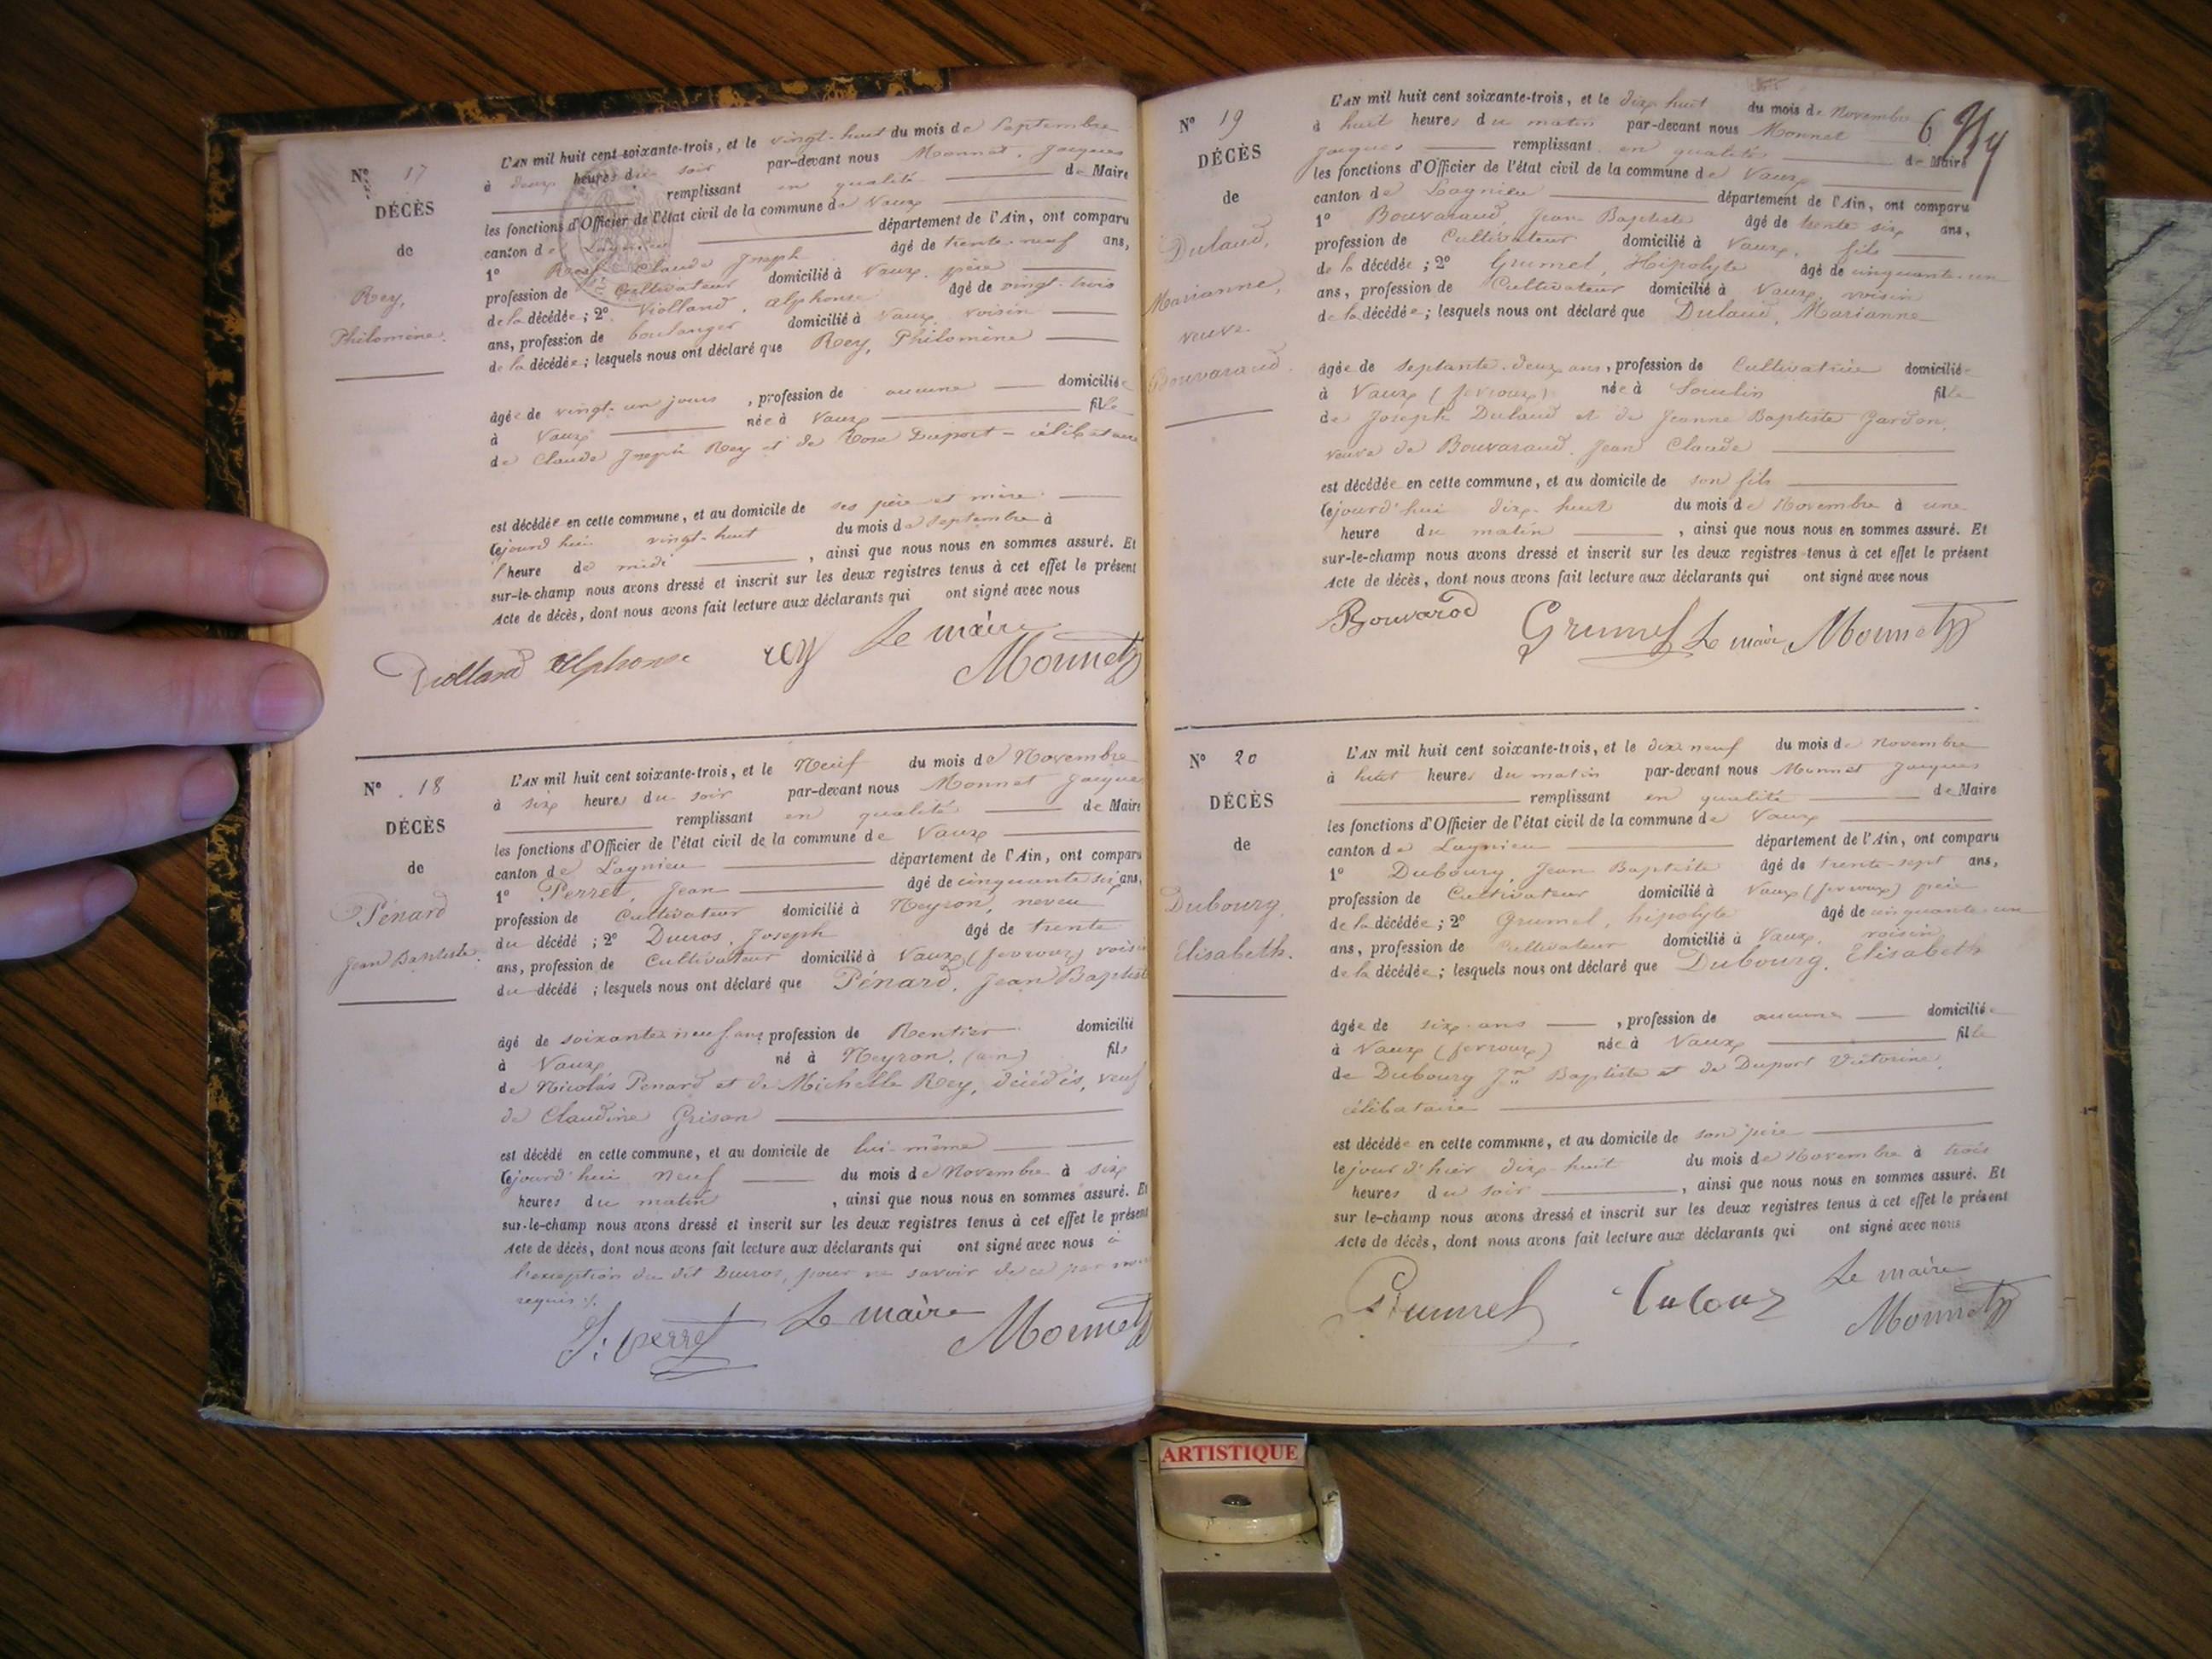 N° 17
DÉCÈS
de
Rey,
Philomène.
L'AN mil huit cent soixante-trois, et le vingt-huit du mois de Septembre
à deux heures du soir par-devant nous Monnet, Jacques
remplissant en qualité de Maire
les fonctions d'Officier de l'état civil de la commune de Vaux
canton de Lagnieu département de l'Ain, ont comparu
1° Rey Claude Joseph âgé de trente-neuf ans,
profession de Cultivateur domicilié à Vaux, père
de la décédée ; 2° Violland, Alphonse âgé de vingt-trois
ans, profession de boulanger domicilié à Vaux voisin
de la décédée ; lesquels nous ont déclaré que Rey, Philomène
âgée de vingt-un jours , profession de aucune domiciliée
à Vaux née à Vaux fille
de Claude Joseph Rey et de Rose Duport - célibataire
est décédée en cette commune, et au domicile de ses père et mère.
Cejourd'hui vingt-huit du mois de Septembre à
1 heure de midi , ainsi que nous nous en sommes assuré. Et
sur-le-champ nous avons dressé et inscrit sur les deux registres tenus à cet effet le présent
Acte de décès, dont nous avons fait lecture aux déclarants qui ont signé avec nous
Violland Alphonse rey Le maire
Monnet
N° 18
DÉCÈS
de
Pénard
Jean Baptiste.
L'AN mil huit cent soixante-trois, et le Neuf du mois de Novembre
à six heures du soir par-devant nous Monnet Jacques
remplissant en qualité de Maire
les fonctions d'Officier de l'état civil de la commune de Vaux
canton de Lagnieu département de l'Ain, ont comparu
1° Perret, Jean âgé de cinquante six ans,
profession de Cultivateur domicilié à Neyron, neveu
du décédé ; 2° Ducros, Joseph âgé de trente
ans, profession de Cultivateur domicilié à Vaux (fevroux) voisin
du décédé ; lesquels nous ont déclaré que Pénard, Jean Baptiste
âgé de soixante neuf ans profession de Rentier domicilié
à Vaux né à Neyron, (ain) fils
de Nicolas Penard et de Michelle Rey, décédés, veuf
de Claudine Grison
est décédé en cette commune, et au domicile de lui-même
Cejourd'hui neuf du mois de Novembre à six
heures du matin , ainsi que nous nous en sommes assuré. Et
sur-le-champ nous avons dressé et inscrit sur les deux registres tenus à cet effet le présent
Acte de décès, dont nous avons fait lecture aux déclarants qui ont signé avec nous à
l'exception du dit Ducros, pour ne savoir de ce par nous
requis ./.
J: perret Le maire Monnet
6
N° 19
DÉCÈS
de
Dulaud,
Marianne,
veuve
Bouvaraud.
L'AN mil huit cent soixante-trois, et le dix huit du mois de Novembre
à huit heures du matin par-devant nous Monnet
Jacques remplissant en qualité de Maire
les fonctions d'Officier de l'état civil de la commune de Vaux
canton de Lagnieu département de l'Ain, ont comparu
1° Bouvaraud, Jean Baptiste âgé de trente six ans,
profession de Cultivateur domicilié à Vaux, fils
de la décédée ; 2° Grumel, Hipolyte âgé de cinquante-un
ans, profession de Cultivateur domicilié à Vaux voisin
de la décédée ; lesquels nous ont déclaré que Dulaud, Marianne
âgée de septante-deux ans , profession de Cultivatrice domiciliée
à Vaux (fevroux) née à Souclin fille
de Joseph Dulaud et de Jeanne Baptiste Jardon,
veuve de Bouvaraud, Jean Claude
est décédée en cette commune, et au domicile de son fils
Cejourd'hui dix-huit du mois de Novembre à une
heure du matin , ainsi que nous nous en sommes assuré. Et
sur-le-champ nous avons dressé et inscrit sur les deux registres tenus à cet effet le présent
Acte de décès, dont nous avons fait lecture aux déclarants qui ont signé avec nous
Bouvarod Grumel Le maire Monnet
N° 20
DÉCÈS
de
Dubourg,
Elisabeth.
L'AN mil huit cent soixante-trois, et le dix neuf du mois de Novembre
à huit heures du matin par-devant nous Monnet Jacques
remplissant en qualité de Maire
les fonctions d'Officier de l'état civil de la commune de Vaux
canton de Lagnieu département de l'Ain, ont comparu
1° Dubourg, Jean Baptiste âgé de trente-sept ans,
profession de Cultivateur domicilié à Vaux (fevroux) père
de la décédée ; 2° Grumel, hipolyte âgé de cinquante-un
ans, profession de Cultivateur domicilié à Vaux, voisin
de la décédée ; lesquels nous ont déclaré que Dubourg, Elisabeth
âgée de six ans , profession de aucune domiciliée
à Vaux (fevroux) née à Vaux fille
de Dubourg Jn Baptiste et de Duport Victorine,
célibataire
est décédée en cette commune, et au domicile de son père
le jour d'hier dix-huit du mois de Novembre à trois
heures du soir , ainsi que nous nous en sommes assuré. Et
sur le-champ nous avons dressé et inscrit sur les deux registres tenus à cet effet le présent
Acte de décès, dont nous avons fait lecture aux déclarants qui ont signé avec nous
Grumel Le maire
Monnet
ARTISTIQUE